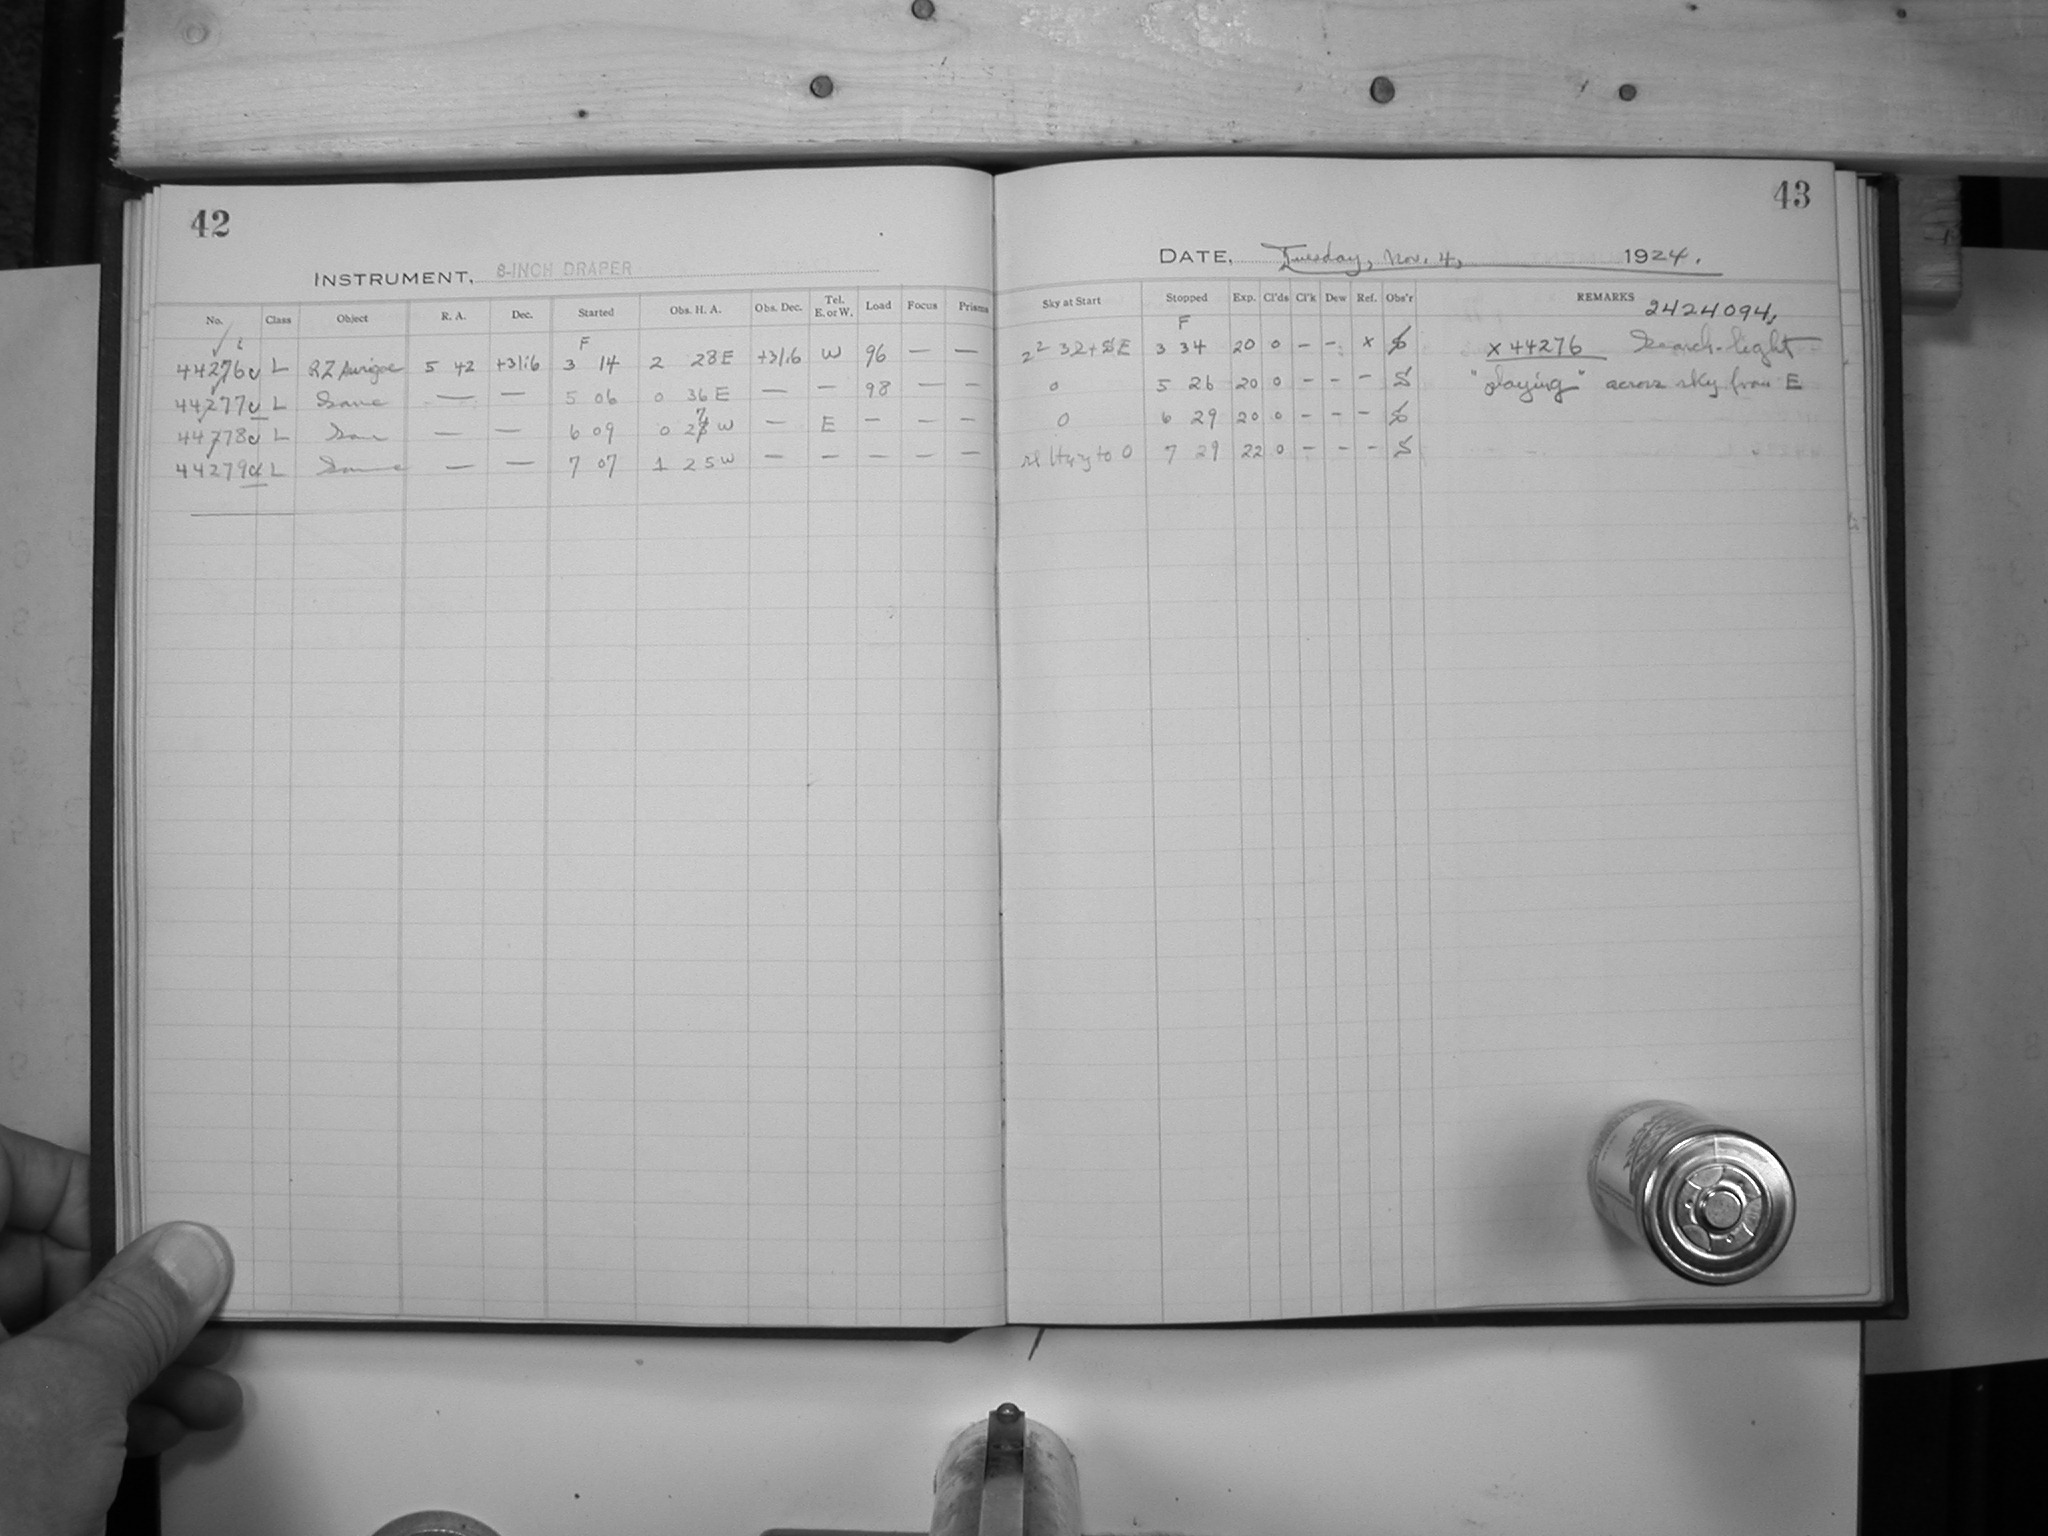 42
INSTRUMENT, 8-INCH DRAPER
No. Class Object R. A. Dec. Started Obs. H. A. Obs. Dec. Tel. E. or W. Load Focus Prisms
F
44276 L RZ Aurigae 5 42 +31.6 3 14 2 28 E +31.6 W 96 — —
44277 L Same — — 5 06 0 36 E — — 98 — —
44278 L Same — — 6 09 0 27 W — E — — —
44279 L Same — — 7 07 1 25 W — — — — —
43
DATE, Tuesday, Nov. 4, 1924.
Sky at Start Stopped Exp. Cl'ds Cl'k Dew Ref. Obs'r REMARKS
2424094,
F
3 34 20 0 – – x x 44276 Search-light
0 5 26 20 0 – – – S "playing" across sky from E
0 6 29 20 0 – – –
to 0 7 29 22 0 – – – S